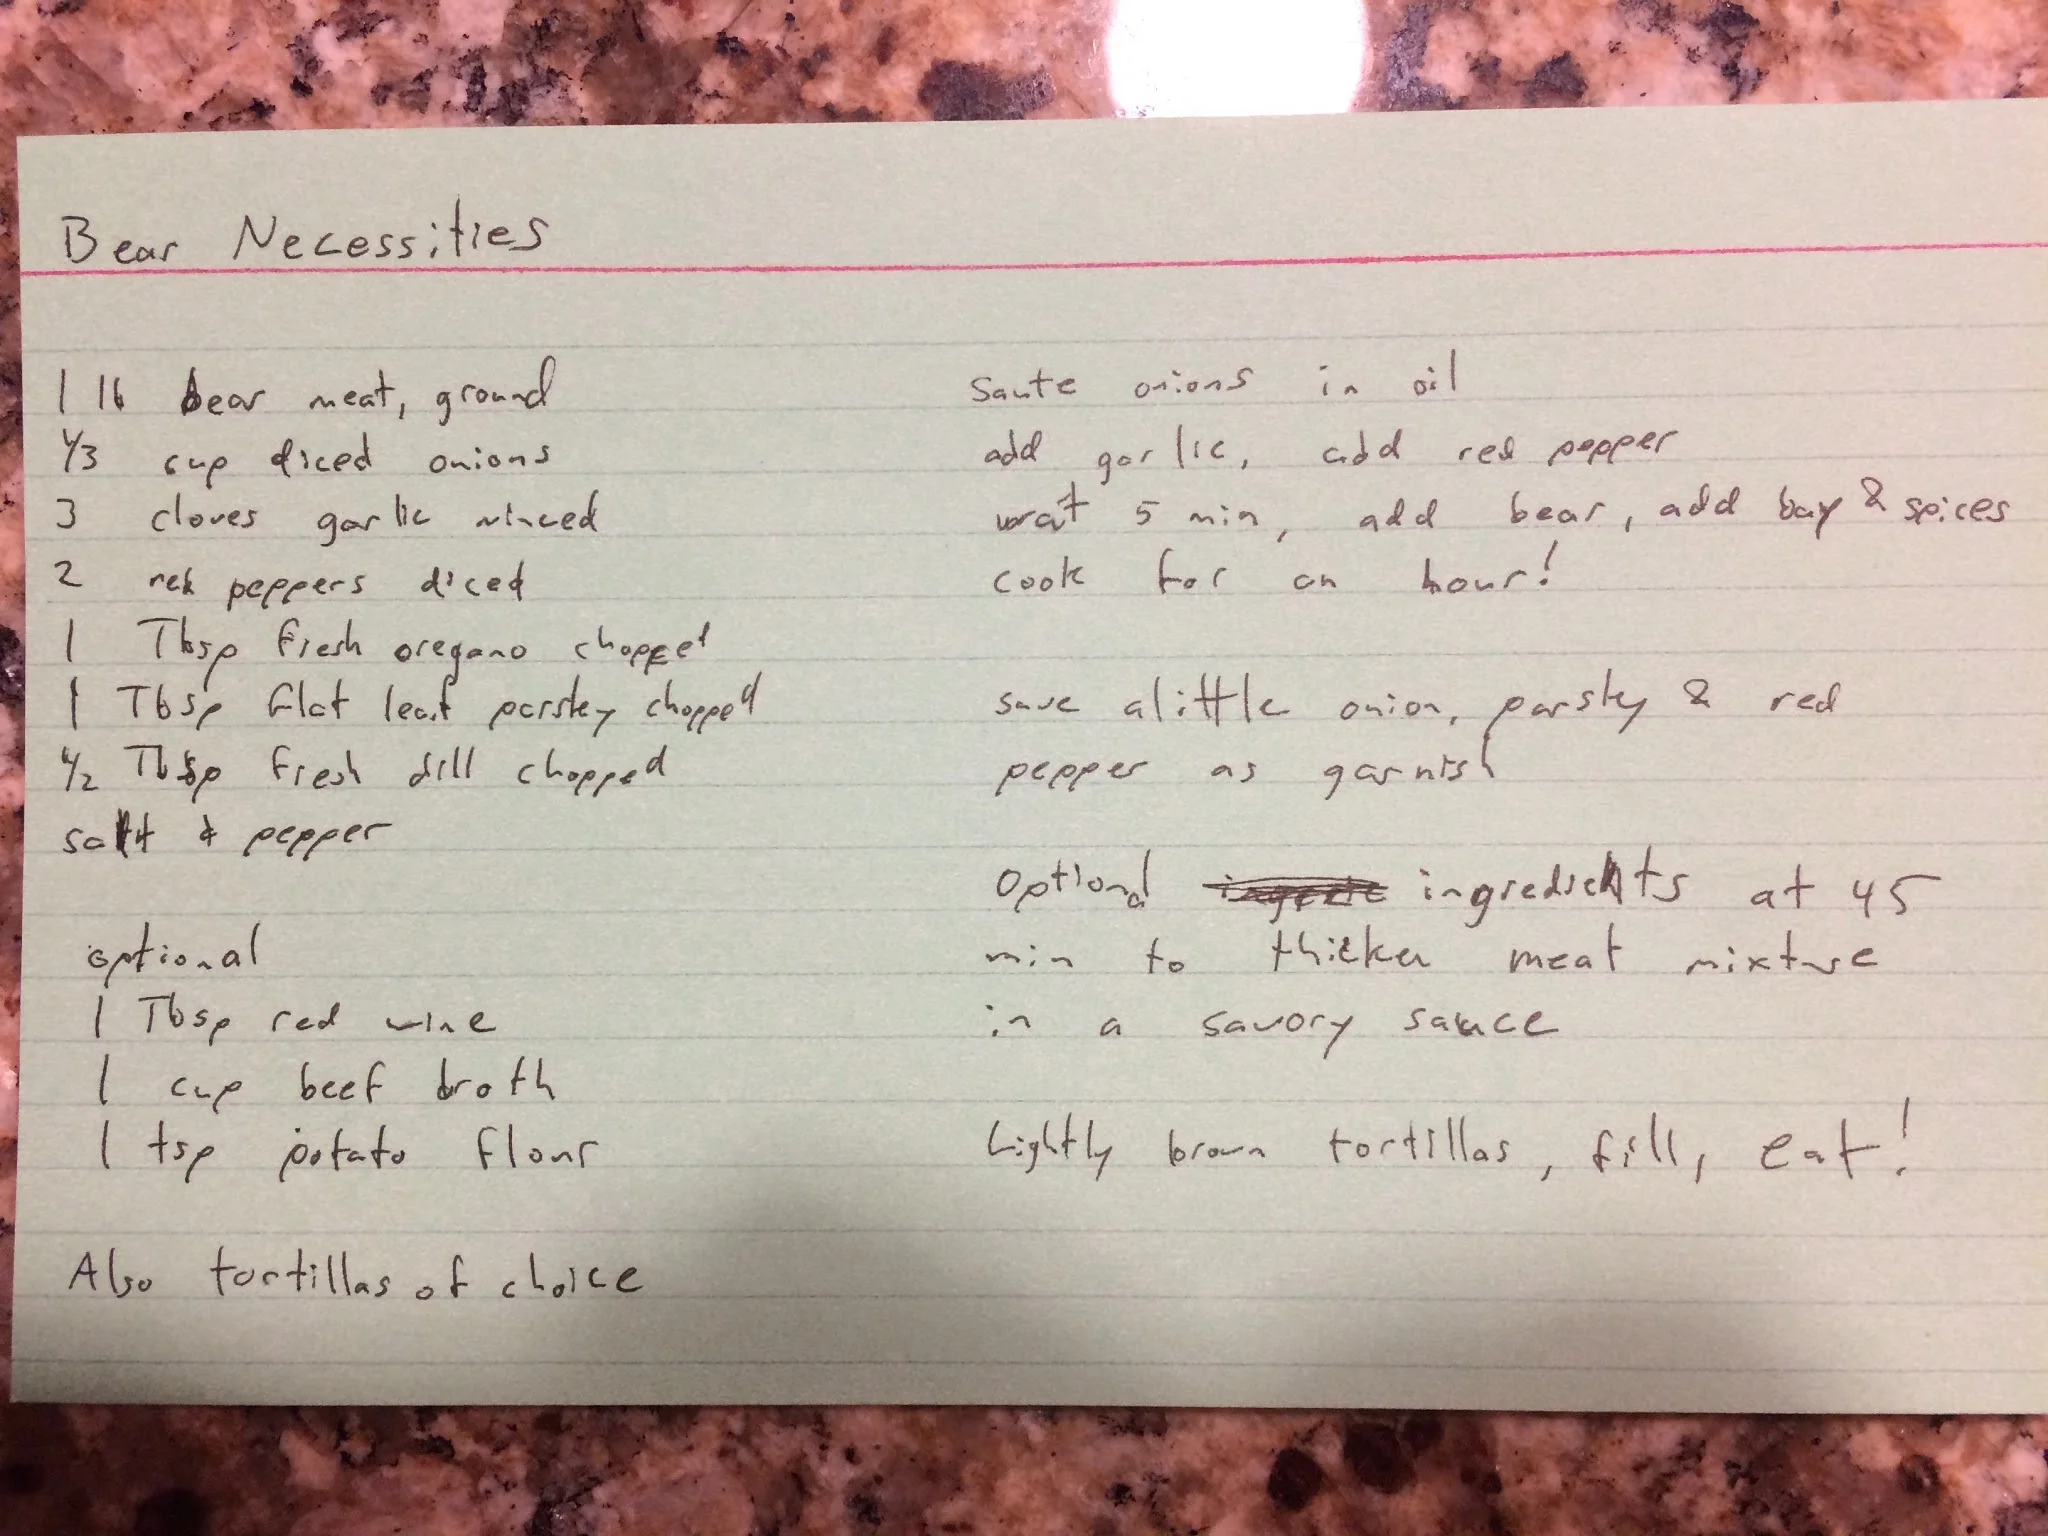 Bear Necessities
1 lb bear meat, ground
1/3 cup diced onions
3 cloves garlic minced
2 red peppers diced
1 Tbsp fresh oregano chopped
1 Tbsp flat leaf parsley chopped
1/2 Tbsp fresh dill chopped
salt & pepper
optional
1 Tbsp red wine
1 cup beef broth
1 tsp potato flour
Also tortillas of choice
Saute onions in oil
add garlic, add red pepper
wait 5 min, add bear, add bay & spices
cook for an hour!
save alittle onion, parsley & red
pepper as garnish
Optional ingredients at 45
min to thicken meat mixture
in a savory sauce
Lightly brown tortillas, fill, eat!